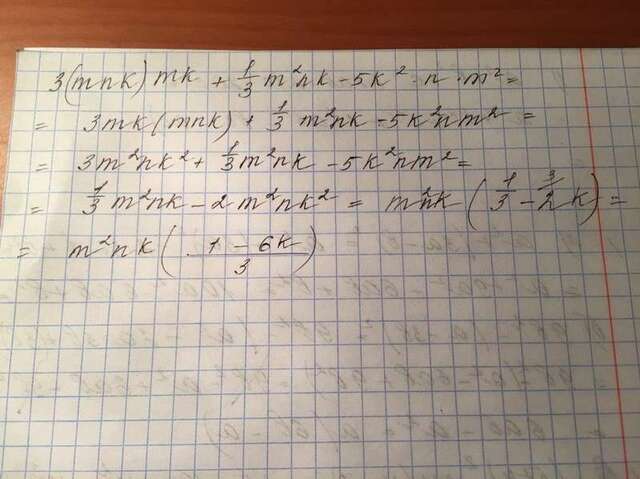 3(mnk)mk + 1/3 m²nk - 5k² · n · m² =
= 3mk(mnk) + 1/3 m²nk - 5k²nm² =
= 3m²nk² + 1/3 m²nk - 5k²nm² =
= 1/3 m²nk - 2m²nk² = m²nk (1/3 - ³2k) =
= m²nk ( (1 - 6k)/3 )